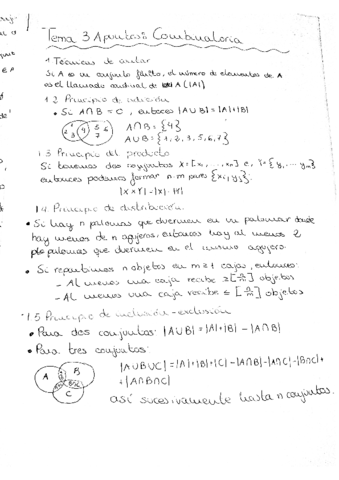 Tema 3 Apuntes: Combinatoria
1 Técnicas de contar
Si A es un conjunto finito, el número de elementos de A
es el llamado cardinal de A (|A|)
1.2 Principio de adición
• Si A∩B = C, entonces |A∪B| = |A|+|B|
2 1 3 4 5 6 7
A∩B = {4}
A∪B = {1, 2, 3, 5, 6, 7}
1.3 Principio del producto
Si tenemos dos conjuntos X = {x, ..., xn} e, Y = {y, ... ym}
entonces podemos formar n·m pares {xi, yj}.
|X×Y| = |X|·|Y|
1.4 Principio de distribución.
• Si hay n palomas que duermen en un palomar donde
hay menos de n agujeros, entonces hay al menos 2
palomas que duermen en el mismo agujero.
• Si repartimos n objetos en m≥1 cajas, entonces:
- Al menos una caja recibe ≥ [n/m] objetos
- Al menos una caja recibe ≤ [n/m] objetos
1.5 Principio de inclusión-exclusión
• Para dos conjuntos: |A∪B| = |A|+|B| - |A∩B|
• Para tres conjuntos:
A B C
|A∪B∪C| = |A|+|B|+|C| - |A∩B| - |A∩C| - |B∩C| +
+ |A∩B∩C|
así sucesivamente hasta n conjuntos.